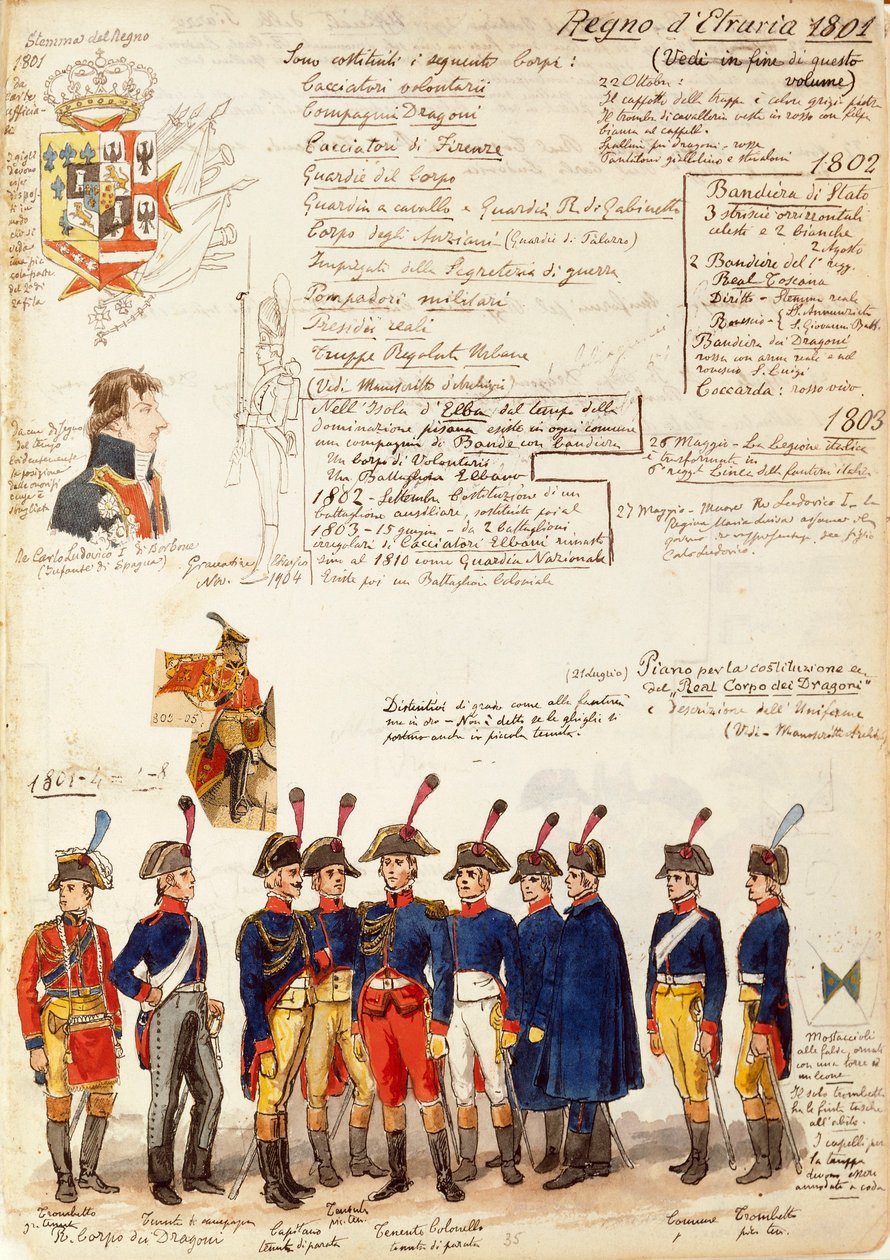 Regno d'Etruria 1801
(Vedi in fine di questo
volume)
Stemma del Regno
1801
Sono costituiti i seguenti Corpi:
Cacciatori volontarii
Compagnia Dragoni
Cacciatori di Firenze
Guardie del Corpo
Guardia a cavallo e Guardia R. di Gabinetto
Corpo degli Anziani (Guardie di Palazzo)
Impiegati della Segreteria di guerra
Pompadori militari
Presidii reali
Truppe Regolate Urbane
(Vedi Manoscritto d'Archivio)
22 Ottobre:
Il cappotto della truppa è colore grigio
Il tromba di cavalleria veste in rosso con
bianca al cappello.
Spallini pei dragoni - rosse
Pantaloni giallolino e stivaloni
1802
Bandiera di Stato
3 striscie orizzontali
celesti e 2 bianche
2 Agosto
2 Bandiere del 1° regg.
Real Toscana
Diritto - Stemma reale
Rovescio - S. Annunziata
S. Giovanni Batt.
Bandiera dei Dragoni
rossa con arme reale e nel
rovescio S. Luigi
Coccarda: rosso vivo.
Nell'Isola d'Elba dal tempo della
dominazione pisana esiste in ogni comune
una compagnia di Bande con bandiera
Un Corpo di Volontarii
Un Battaglione Elbano
1802 - Settembre Costituzione di un
battaglione ausiliare, sostituito poi al
1803 - 15 giugno - da 2 battaglioni
irregolari di Cacciatori Elbani rimasto
sino al 1810 come Guardia Nazionale
Esiste poi un Battaglione Coloniale
1803
26 Maggio - La Legione italica
è trasformata in
6° regg. Linea della fanteria italica
27 Maggio - Muore Re Ludovico I - La
Regina Maria Luisa assume il
governo in rappresentanza del figlio
Carlo Ludovico.
Re Carlo Ludovico I di Borbone
(Infante di Spagna)
Granatiere
Nov. 1904
(21 Luglio) Piano per la costituzione
del "Real Corpo dei Dragoni"
e Descrizione dell'Uniforme
(Vedi - Manoscritti Archivio
Distintivi di grado come alla fanteria
ma in oro - Non è detto se le ghiglie si
portino anche in piccola tenuta.
805-05
1801-4
Mostaccioli
alle falde, ornati
con una torre ed
un leone
Il solo trombetto
ha le finte tasche
all'abito.
I capelli per
la truppa
devono essere
annodati a coda
Trombetto
gr. tenuta
Tenente di campagna
Capitano
tenuta di parata
Tenente
pic. ten.
Tenente Colonello
tenuta di parata
Comune
Trombetto
pic. ten.
R. Corpo dei Dragoni
35